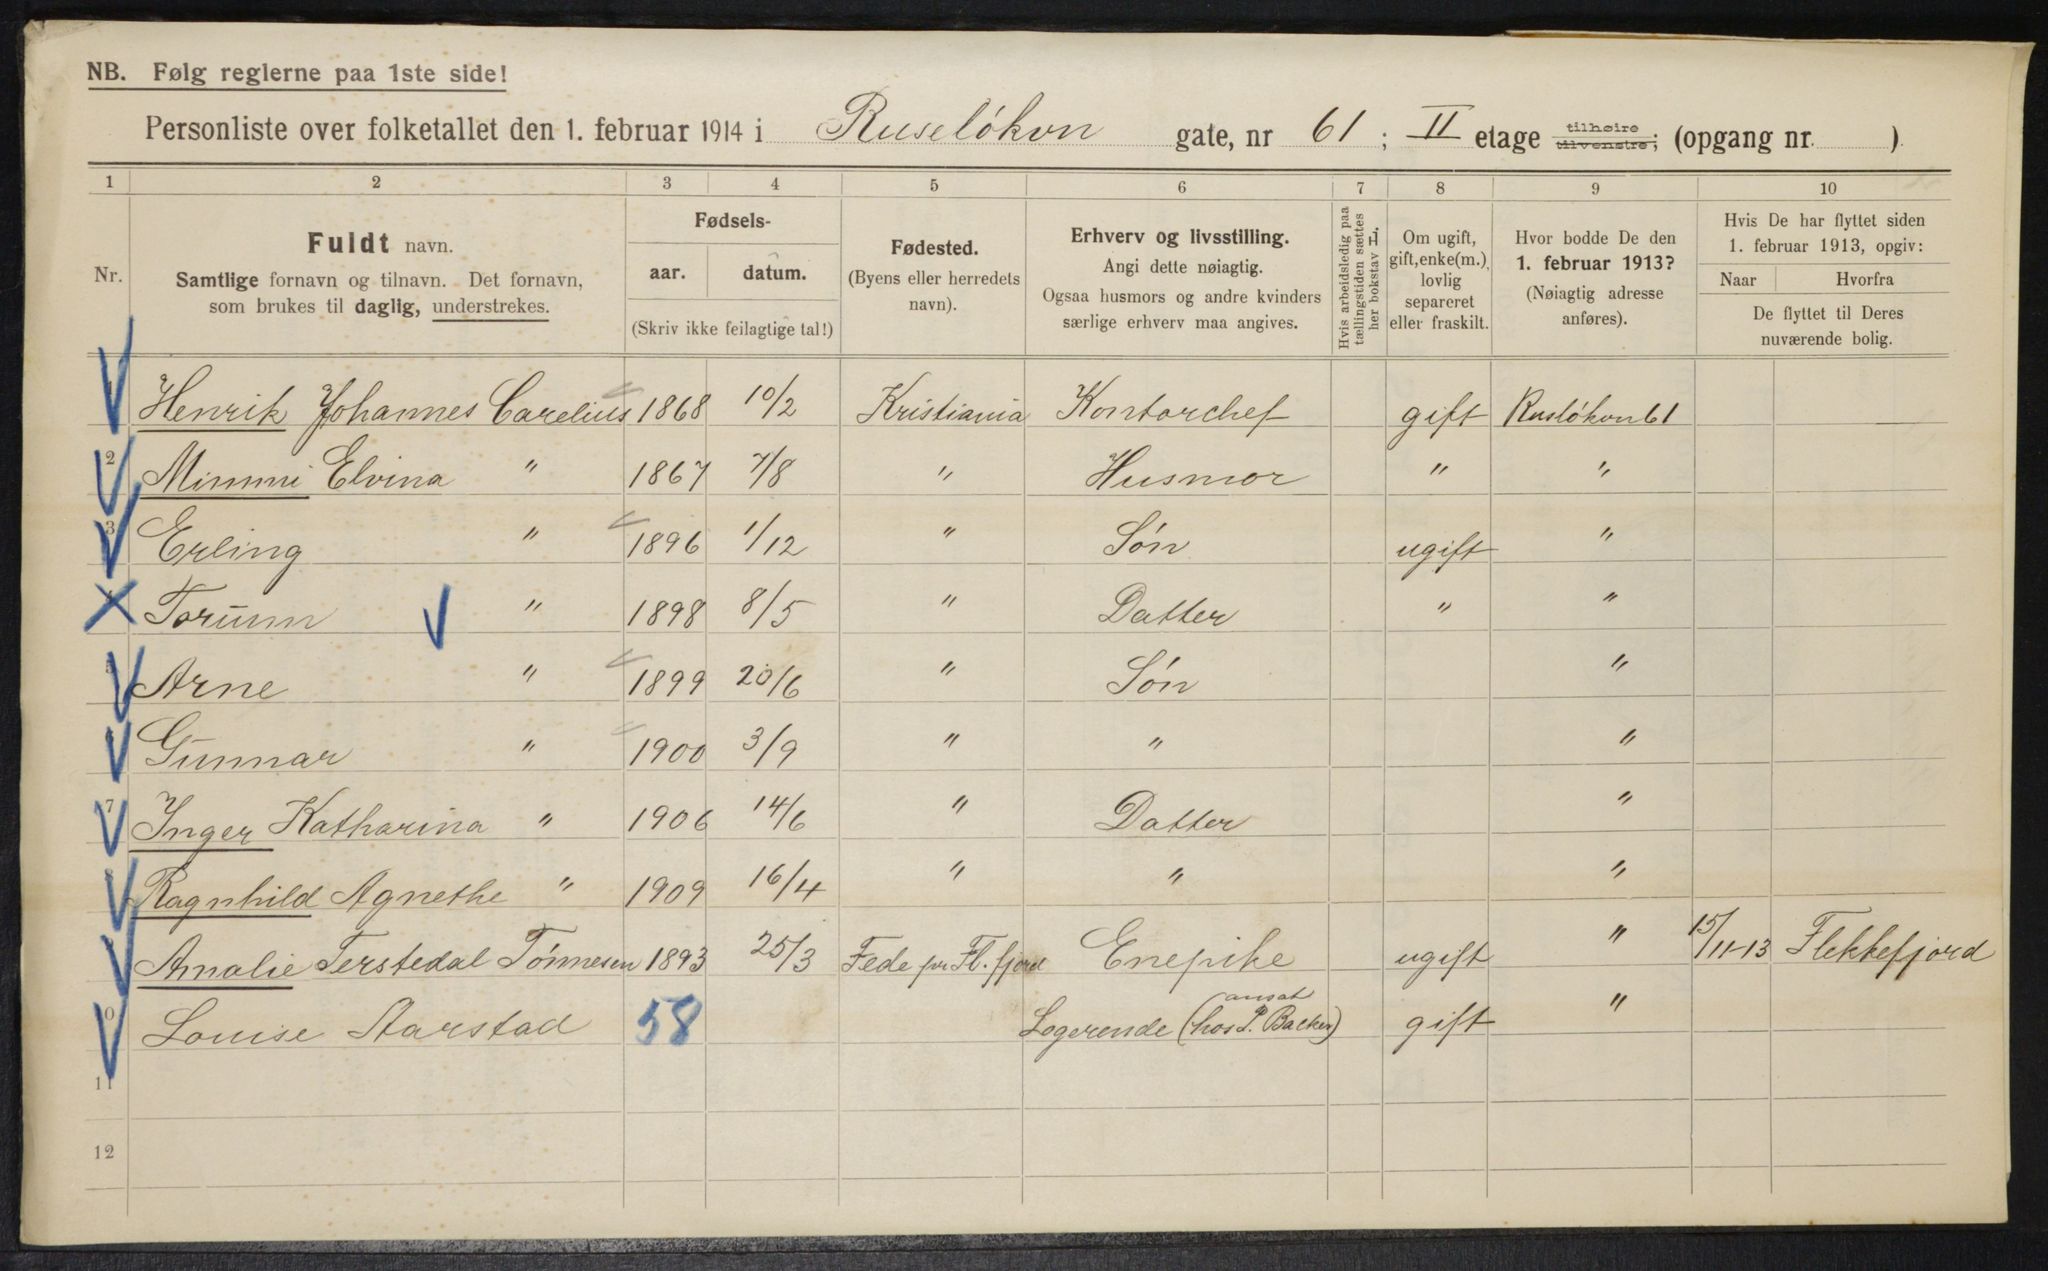 NB. Følg reglerne paa 1ste side!
Personliste over folketallet den 1. februar 1914 i Ruseløkvn gate, nr 61; II etage tilhøire tilvenstre; (opgang nr. )
1 2 3 4 5 6 7 8 9 10
Nr.
Fuldt navn.
Samtlige fornavn og tilnavn. Det fornavn,
som brukes til daglig, understrekes.
Fødsels-
aar. datum.
(Skriv ikke feilagtige tal!)
Fødested.
(Byens eller herredets
navn).
Erhverv og livsstilling.
Angi dette nøiagtig.
Ogsaa husmors og andre kvinders
særlige erhverv maa angives.
Hvis arbeidsledig paa
tællingstiden sættes
her bokstav L.
Om ugift,
gift, enke(m.),
lovlig
separeret
eller fraskilt.
Hvor bodde De den
1. februar 1913?
(Nøiagtig adresse
anføres).
Hvis De har flyttet siden
1. februar 1913, opgiv:
Naar Hvorfra
De flyttet til Deres
nuværende bolig.
1 Henrik Johannes Carelius 1868 10/2 Kristiania Kontorchef gift Rusløkvn 61
2 Mimmi Elvina " 1867 7/8 " Husmor " "
3 Erling " 1896 1/12 " Søn ugift "
4 Torunn " 1898 8/5 " Datter " "
5 Arne " 1899 20/6 " Søn "
6 Gunnar " 1900 3/9 " " "
7 Inger Katharina " 1906 14/6 " Datter "
8 Ragnhild Agnethe " 1909 16/4 " " "
Amalie Terstedal Tønnesen 1893 25/3 Fede pr Fl.fjord Enepike ugift " 15/11-13 Flekkefjord
0 Louise Aarstad 58 Logerende (ansat hos P. Backer) gift "
11
12